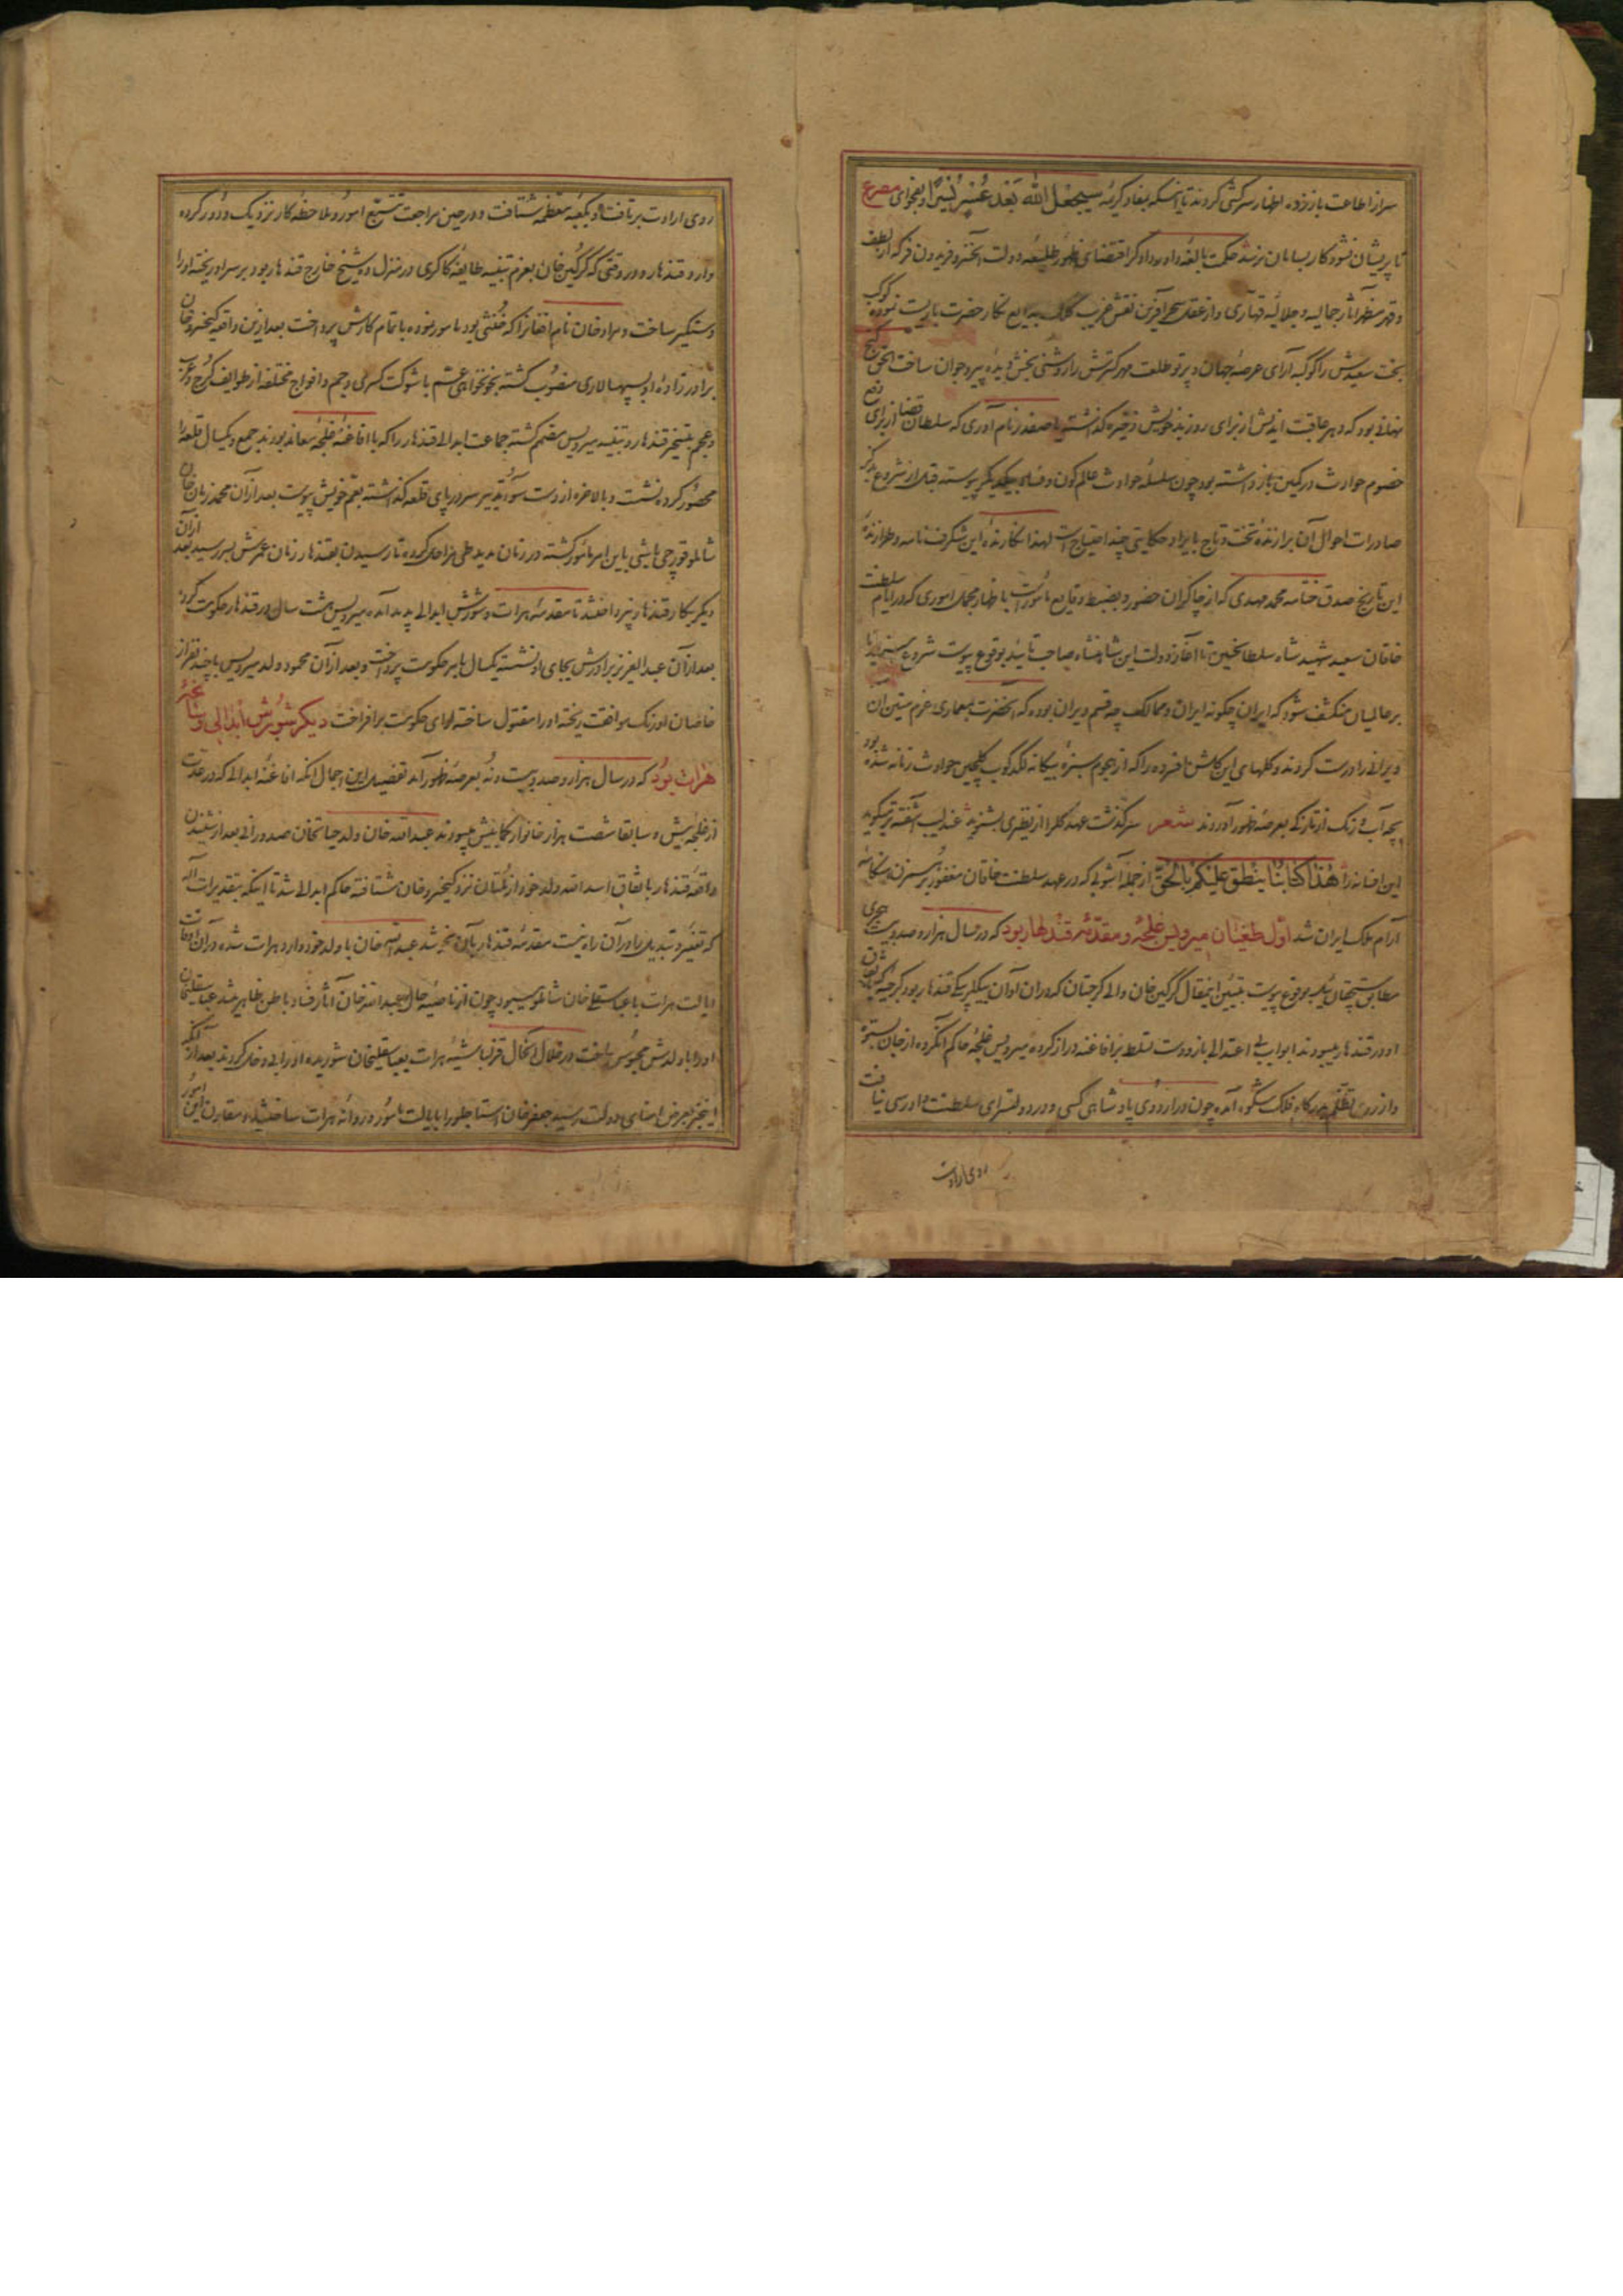 سر از اطاعت باز زده اظهار سرکشی کردند تا اینکه بمفاد کریمه سیجعل الله بعد عسر یسرا و بفحوای مصرع
تا پریشان نشود کار بسامان نرسد حکمت بالغه داور دادگر اقتضای ظهور طلیعه دولت آنخسرو فریدون فر که از لطف
و قهر مظهر آثار جمالیه و جلالیه قهاری و از نقش غریب کلک بدایع نگار حضرت باریست نموده کوکب
بخت سعیدش را کوکبه آرای عرصه جهان و پرتو طلعت مهر گسترش را روشنی بخش دیده پیر و جوان ساخت الحق گنج
نهانی بود که دهر عاقبت اندیش از برای روز بد خویش ذخیره گذاشته یا صفدر نام آوری که سلطان قضا از برای دفع
خصوم حوادث در کمین باز داشته بود چون سلسله حوادث عالم کون و فساد بیکدیگر پیوسته قبل از شروع بذکر
صادرات احوال آن برازنده تخت و تاج بایراد حکایتی چند احتیاج است لهذا نگارنده این شگرف نامه و طرازنده
این تاریخ صدق ختامه محمد مهدی که از چاکران حضور و بضبط وقایع مأمور است باظهار مجمل اموری که در ایام سلطنت
خاقان سعید شهید شاه سلطانحسین تا آغاز دولت این شاهنشاه صاحب تایید بوقوع پیوست شروع مینماید تا
بر عالمیان منکشف شود که ایران چگونه ایران و ممالک چه قسم ویران بوده که آنحضرت بمعماری عزم متین آن
ویرانی را درست کردند و گلهای این گلشن افسرده را که از هجوم سبزه بیگانه لگدکوب گلچین حوادث زمانه شده بود
بچه آب و رنگ از تازگی بعرصه ظهور آوردند شعر سرگذشت عهد گل را از نظیری بشنوید عندلیب آشفته‌تر میگوید
این افسانه را هذا کتابنا ینطق علیکم بالحق از جمله آشوبی که در عهد سلطنت خاقان مغفور بر سر نزد هنگامه
آرام ملک ایران شد اول طغیان میرویس غلجه و مقدمه قندهار بود که در سال هزار و صد و بیست هجری
مطابق سیچقان ئیل بوقوع پیوست تبیین اینمقال گرگین خان والی گرجستان که در آن اوان بیگلربیگی قندهار بود گرجیه که
او در قندهار میبودند ابواب بی اعتدالی باز و دست تسلط بر افاغنه دراز کرده میرویس غلجه حاکم آنگروه از جان بستوه
و از روی تظلم بدرگاه فلک شکوه آمده چون در اردوی پادشاهی کسی و در دولتسرای سلطنت دادرسی نیافت
روی ارادت
روی ارادت برتافت و بکعبه معظمه شتافت و در حین مراجعت تتبع امور و ملاحظه کار نزدیک و دور کرده
وارد قندهار و در وقتی که گرگین خان بعزم تنبیه طایفه کاکری در منزل ده شیخ خارج قندهار بود بر سر او ریخته او را
دستگیر ساخت و مراد خان نام افغان را که خنثی بود مامور نموده باتمام کارش پرداخت بعد ازین واقعه کیخسرو خان
برادرزاده او بسپهسالاری منصوب گشته بخونخواهی عم با شوکت کسری و جم و افواج مختلفه از طوایف گرج و عرب
و عجم بتسخیر قندهار و تنبیه میرویس مصمم گشته جماعت ابدالی قندهار را که با افاغنه غلجه معاند بودند جمع و یکسال قلعه را
محصور کرده نشست و بالاخره از دست سوء تدبیر سر در پای قلعه گذاشته بعم خویش پیوست بعد از آن محمد زمان خان
شاملو قورچی باشی باین امر مأمور گشته در زمان مدید طی مراحل کرده تا رسیدن بقندهار زمان عمرش بسر رسید بعد از آن
دیگر بکار قندهار نپرداختند تا مقدمه هرات و شورش ابدالی پدید آمده میرویس هشت سال در قندهار حکومت کرد
بعد از آن عبدالعزیز برادرش بجای او نشسته یکسال بامر حکومت پرداخت و بعد از آن محمود ولد میرویس با چند نفر از
خاصان او رنگ موافقت ریخته او را مقتول ساخته لوای حکومت برافراخت دیگر شورش ابدالی و شاعبه
هرات بود که در سال هزار و صد و بیست و نه بعرصه ظهور آمد تفصیل این اجمال آنکه افاغنه ابدالی که در عدت
از غلجه بیش و سابقا شصت هزار خانوار کمابیش میبودند عبدالله خان ولد حیات خان صدوزائی بعد از شنیدن
واقعه قندهار باتفاق اسدالله ولد خود از ملتان نزد کیخسرو خان شتافته حاکم ابدالی شد تا اینکه بتقدیرات اله
که تغییر و تبدیل را در آن راه نیست مقدمه قندهار بآن منجر شد عبدالله خان با ولد خود وارد هرات شده در آن اوقات
ایالت هرات با عباسقلی خان شاملو میبود چون از ناصیه حال عبدالله خان آثار فساد باطن ظاهر شد عباسقلیخان
او را با ولدش محبوس ساخت در خلال آنحال قزلباشیه هرات بعباسقلیخان شوریده او را بی دخل کردند بعد از آنکه
اینخبر بعرض امنای دولت رسید جعفر خان استاجلو را بایالت مأمور و روانه هرات ساختند و مقارن این امور